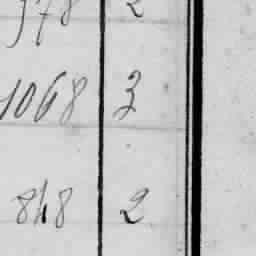 978 2
1068 3
848 2